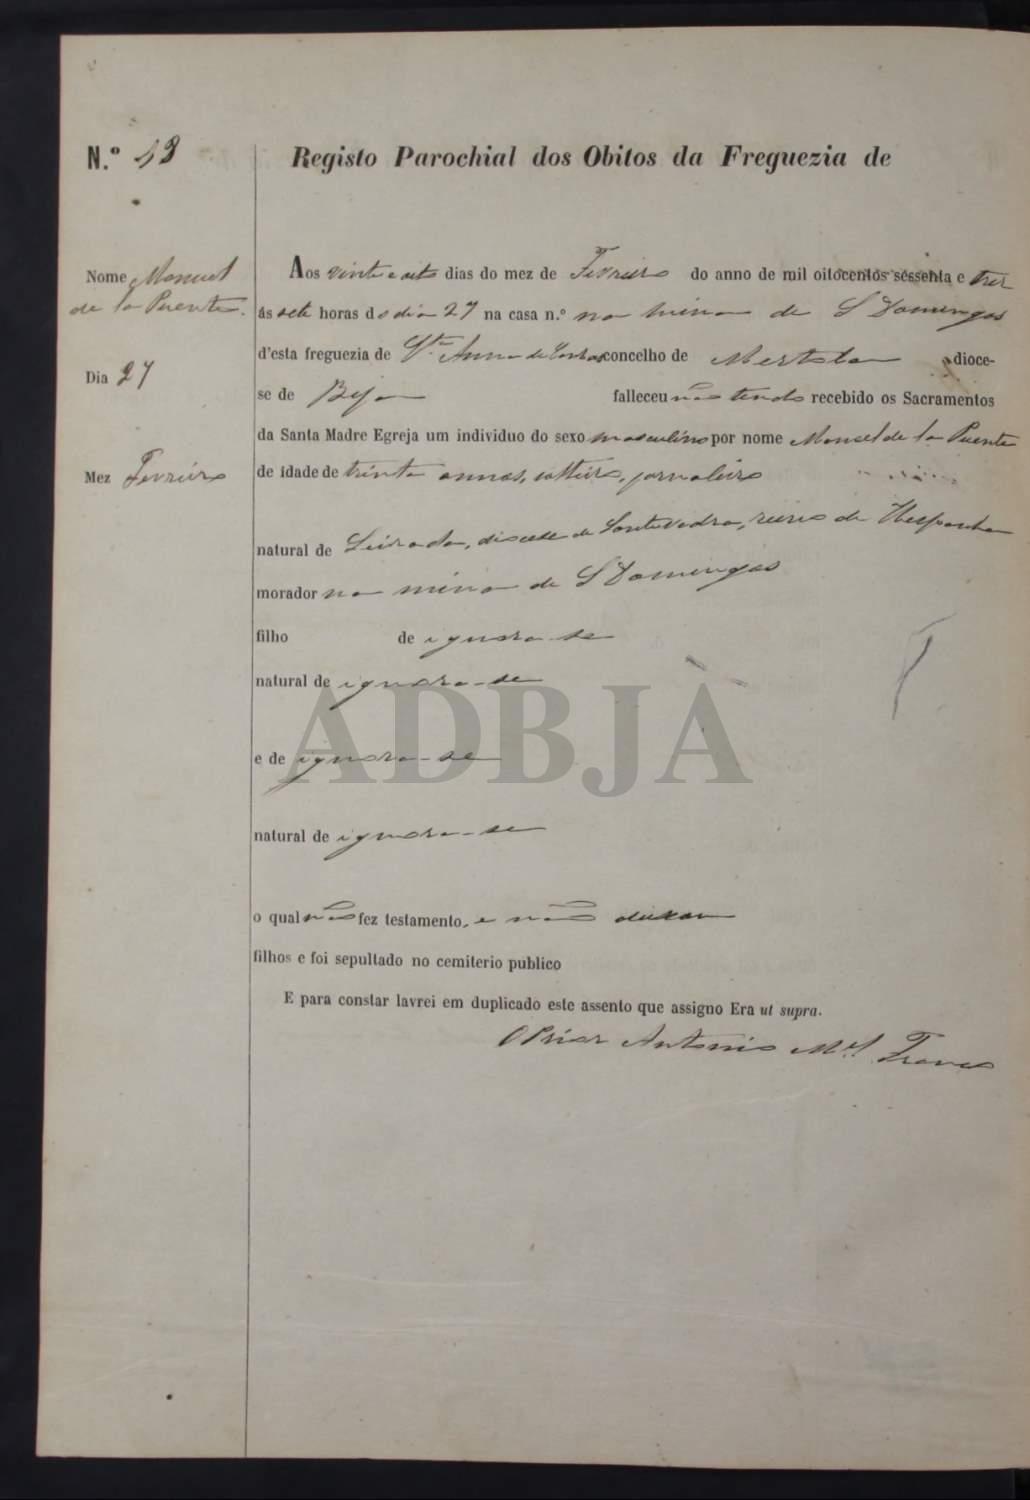 N.º 13
Registo Parochial dos Obitos da Freguezia de
Nome Manuel
de la Puente.
Dia 27
Mez Fevreiro
Aos vinte e oito dias do mez de Fevreiro do anno de mil oitocentos sessenta e tres
ás sete horas do dia 27 na casa n.º na mina de S Domingos
d'esta freguezia de Stª Anna de Cambas concelho de Mertola dioce-
se de Beja falleceu não tendo recebido os Sacramentos
da Santa Madre Egreja um individuo do sexo masculino por nome Manuel de la Puente
de idade de trinta annos, solteiro, jornaleiro
natural de diocese de Pontevedra, reino de Hespanha
morador na mina de S Domingos
filho de ignora-se
natural de ignora-se
e de ignora-se
natural de ignora-se
o qual não fez testamento, e não deixou
filhos e foi sepultado no cemiterio publico
E para constar lavrei em duplicado este assento que assigno Era ut supra.
O Prior Antonio Mel Franco
ADBJA